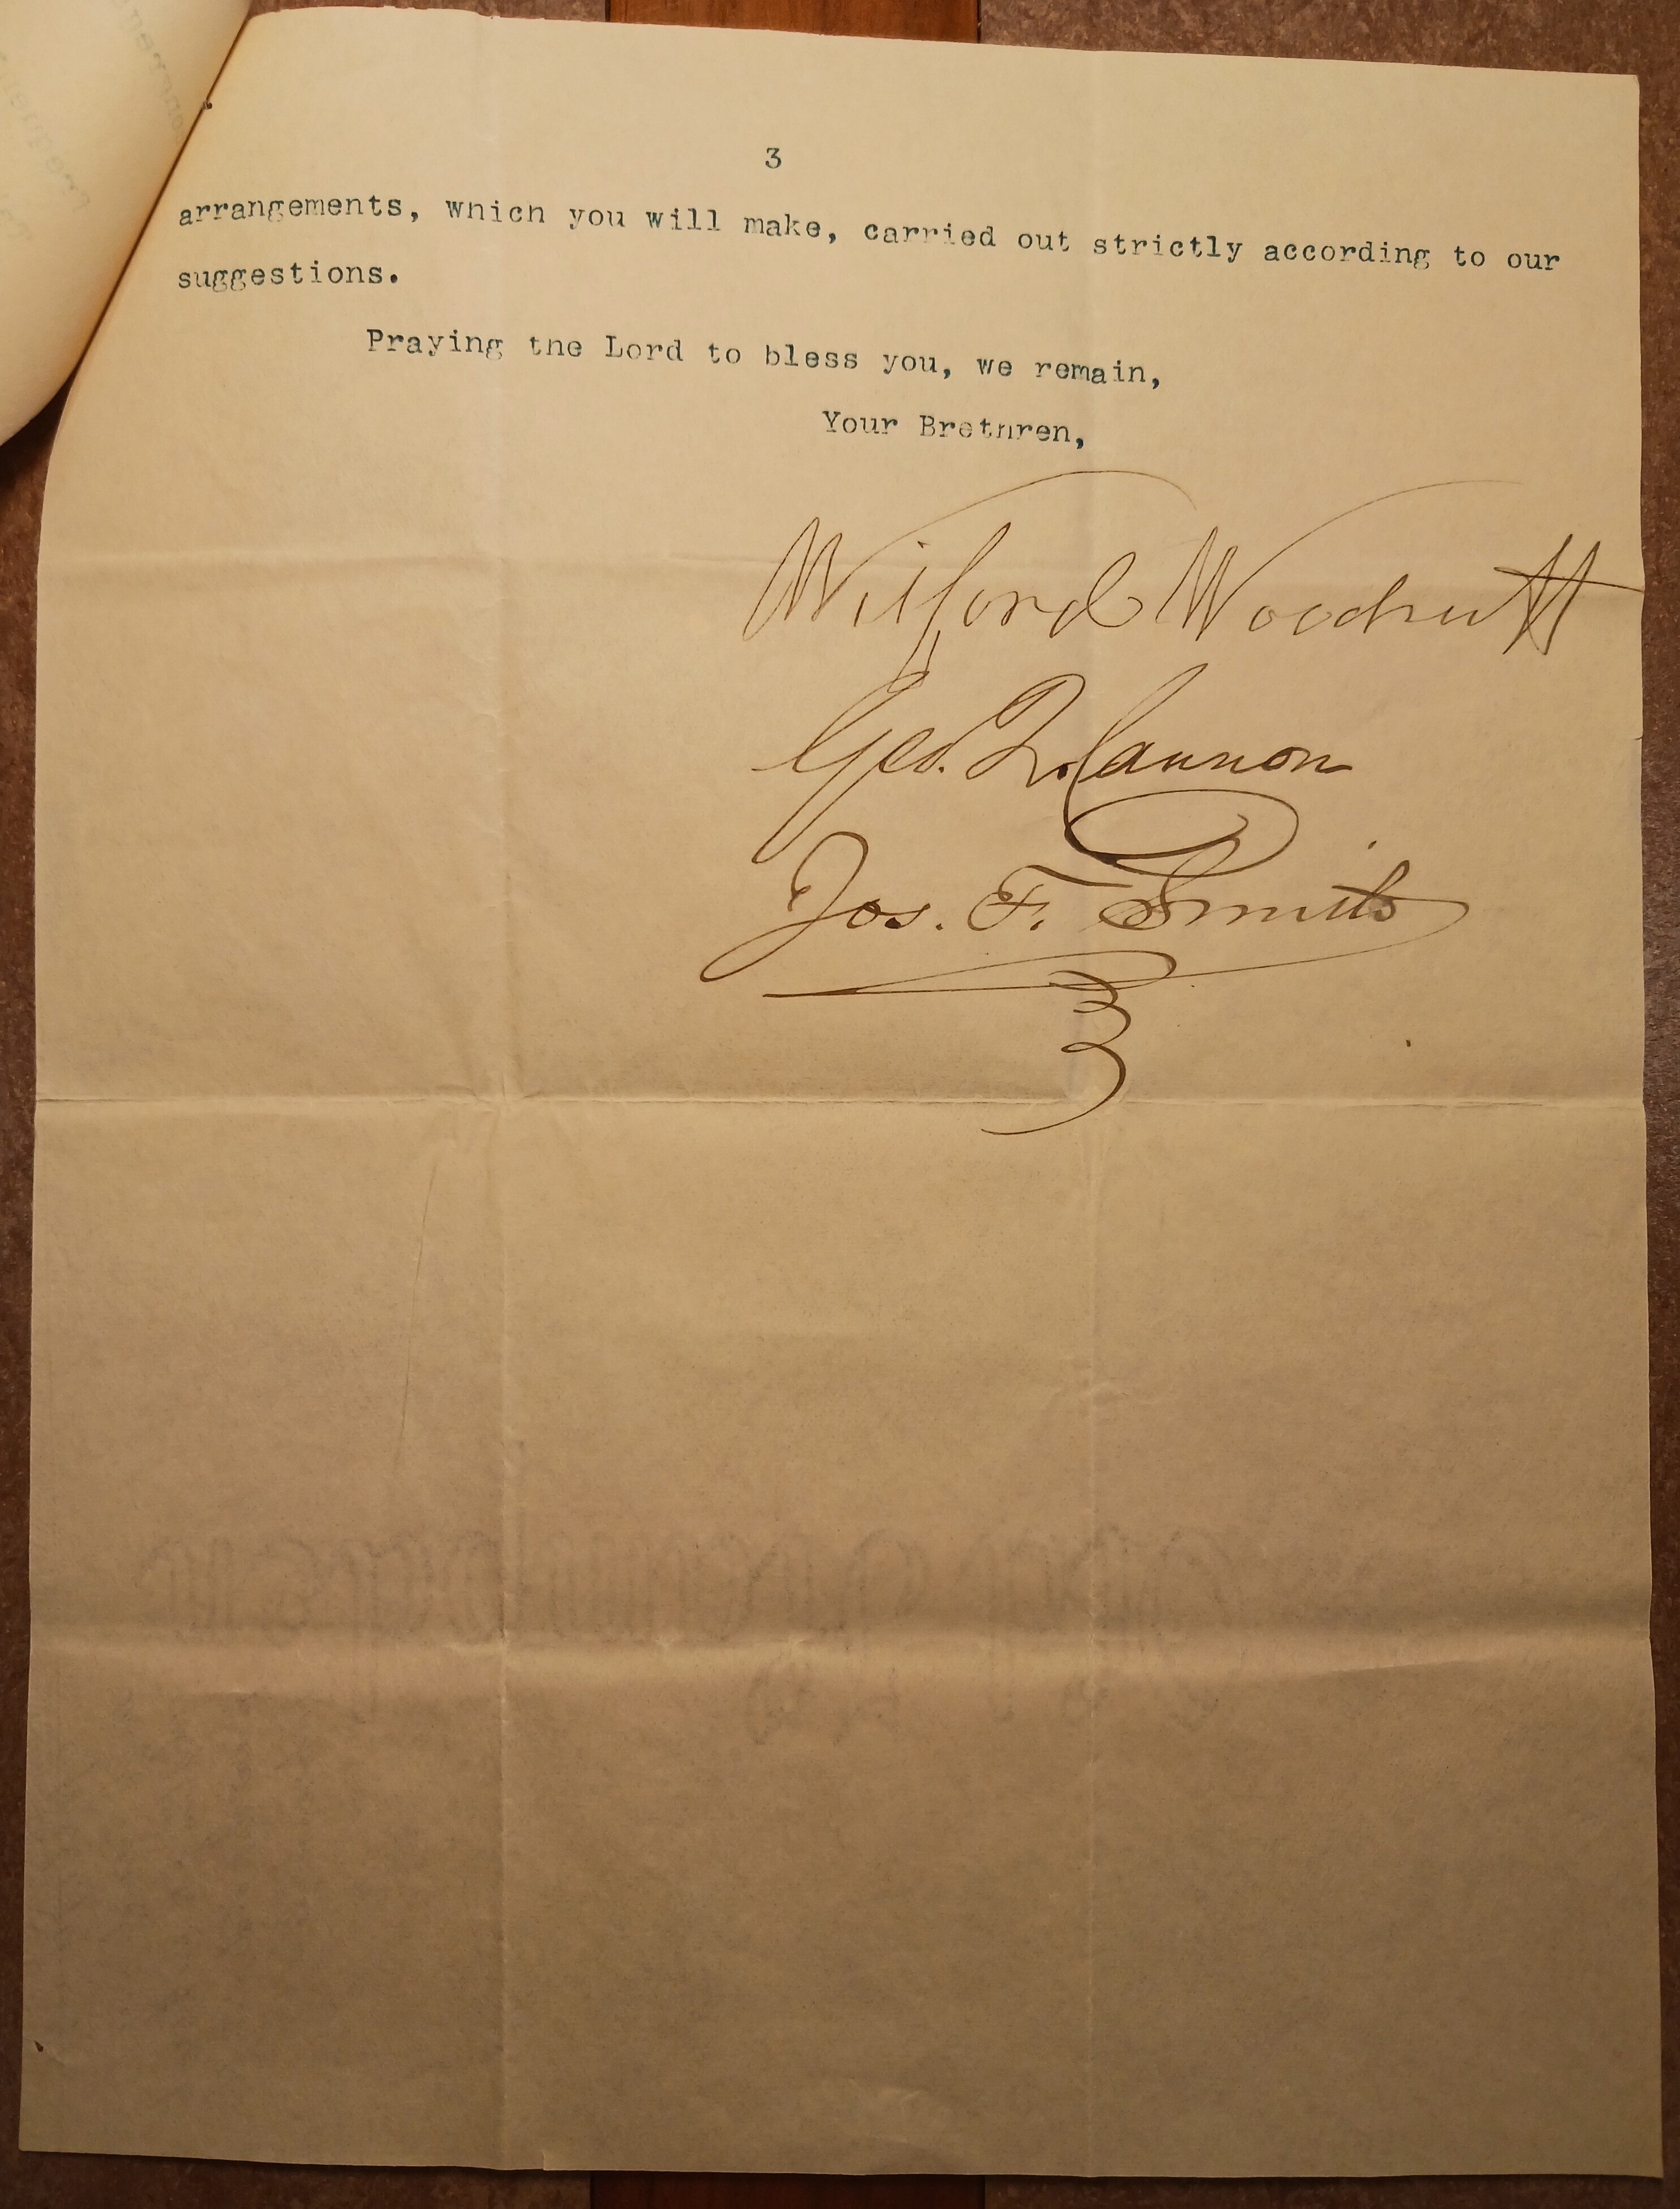 3
arrangements, which you will make, carried out strictly according to our
suggestions.
Praying the Lord to bless you, we remain,
Your Brethren,
Wilford Woodruff
Geo. Q. Cannon
Jos. F. Smith